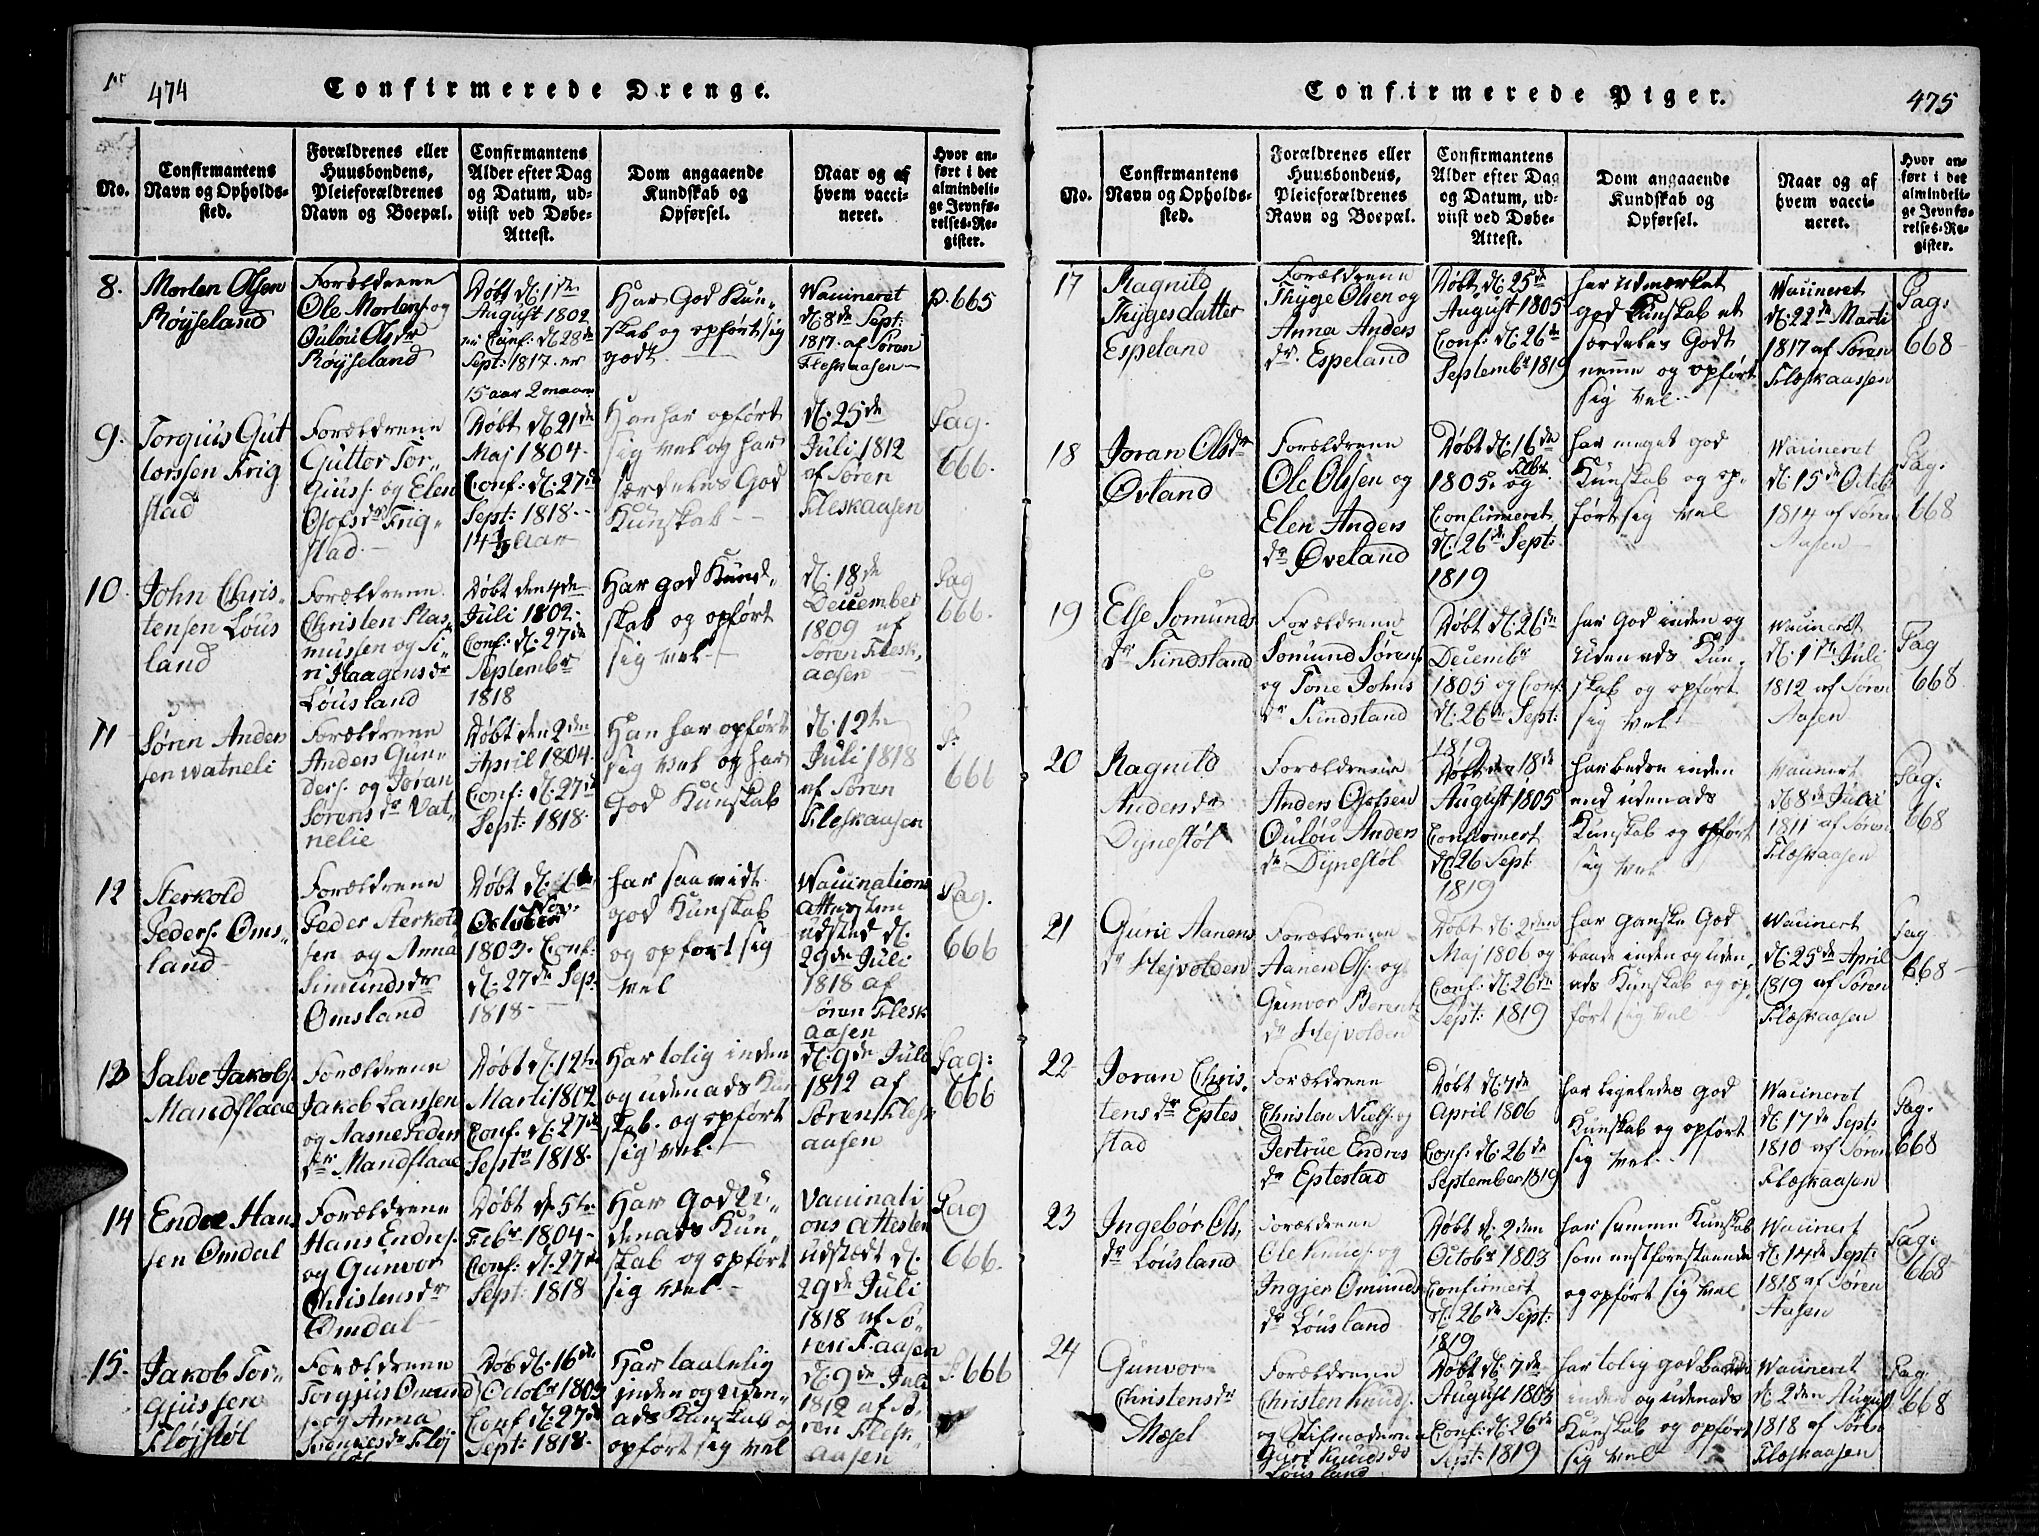 474
Confirmerede Drenge.
No.
Confirmantens
Navn og Opholds-
sted.
Forældrenes eller
Huusbondens,
Pleieforældrenes
Navn og Boepæl.
Confirmantens
Alder efter Dag
og Datum, ud-
viist ved Døbe-
Attest.
Dom angaaende
Kundskab og
Opførsel.
Naar og af
hvem vacci-
neret.
Hvor an-
ført i det
almindeli-
ge Jevnfø-
relses-Re-
gister.
8.
Morten Olsen
Røyseland
Forældrene
Ole Mortens. og
Oulou Olsdr
Røyseland
Døbt d. 1ste
August 1802
Conf: d. 28de
Sept: 1817. er
15 aar 2 maan
Har God Kun-
skab og opført sig
godt.
Vaccineret
d. 8de Sept:
1817. af Søren
Fleskaasen
p. 665
9.
Torgius Gut
torssen Frig
stad
Forældrene
Guttor Tor-
giuss. og Elen
Olofsdr Frig-
stad.
Døbt d. 21de
Maj 1804.
Conf: d. 27de
Sept: 1818.
14 1/3 Aar
Han har opført
sig vel og har
særdeles God
Kunskab
d. 25de
Juli 1812
af Søren
Fleskaasen
Pag.
666.
10
John Chris-
tensen Lous
land
Forældrene
Christen Ras-
mussen og Si-
ri Haagensdr
Lousland
Døbt den 4de
Juli 1802.
Conf: d. 27de
Septembr
1818
Har god Kund-
skab og opført
sig vel
d. 18de
December
1809 af
Søren Flesk-
aasen
Pag
666.
11
Søren Anders
sen Watneli
Forældrene
Anders Gun-
ders. og Joran
Sørensdr Vat-
nelie
Døbt den 2den
April 1804.
Conf: d. 27de
Sept: 1818.
Han har opført
sig vel og har
God Kunskab
d. 12te
Juli 1818
af Søren
Fleskaasen
P.
666
12
Sterkold
Peders. Oms-
land
Forældrene
Peder Sterkold
sen og Anna
Simundsdr
Omsland
Døbt d.
October Nov.
1803. Conf:
d. 27de Sep.
1818
har saavidt
god Kunskab
og opført sig
vel
Vaccinations
Attesten
udsted d.
29de Juli
1818 af
Søren Flesk
aasen
Pag.
666
13
Salve Jakobs.
Mandflaae
Forældrene
Jakob Larssen
og Aasne Peders
dr Mandflaae
Døbt d. 12te
Marti 1802
Conf: d. 27de
Septr 1818.
Har tolig inden
og udenads Kun
skab. og opført
sig vel.
d. 9de Juli
1812 af
Søren Flesk
aasen
Pag:
666
14
Endre Hans
sen Omdal
Forældrene
Hans Endres.
og Gunvor
Christensdr
Omdal
Døbt d. 5te
Febr 1804
Conf: d. 27de
Sept: 1818
Har God U-
denads Kun-
skab og opført
sig vel
Vaccinati
ons Attesten
udstedt d.
29de Juli
1818 af Sø-
ren F.aasen
Pag
666.
15.
Jakob Tor-
gjussen
Fløjstøl
Forældrene
Torgjus Omund
s. og Anna
Fløj
Døb d. 16de
Octobr 1803
Conf d. 27de
Sept: 1818.
Har taalelig
inden og uden-
ads Kunskab og
opført sig vel
d. 9de Juli
1812 af Sø-
ren Flesk-
aasen
P. 666
Confirmerede Piger.
475
No.
Confirmantens
Navn og Opholds-
sted.
Forældrenes eller
Huusbondens,
Pleieforældrenes
Navn og Boepæl.
Confirmantens
Alder efter Dag
og Datum, ud-
viist ved Døbe-
Attest.
Dom angaaende
Kundskab og
Opførsel.
Naar og af
hvem vacci-
neret.
Hvor an-
ført i det
almindeli-
ge Jevnfø-
relses-Re-
gister.
17
Ragnild
Thygesdatter
Espeland
Forældrene
Thyge Olsen og
Anna Anders
dr. Espeland
Døbt d. 25de
August 1805
Conf: d. 26de
Septembr 1819
har udmærket
god Kunskab et
særdeles Godt
nemme og opført
sig vel
Vaccineret
d. 22de Marti
1817 af Søren
Flæskaassen
Pag:
668
18
Joran Olsdr
Øvland
Forældrene
Ole Olssen og
Elen Anders
dr Øveland
Døbt d. 16de
Febr.
1805. og
Confirmeret
d. 26de Sept:
1819
har meget god
Kunskab og op-
ført sig vel
Vaccineret
d. 15de Octob
1814 af Søren
Aasen
Pag.
668
19
Else Somunds
dr Findsland
Forældrene
Somund Sørens.
og Tone Johns
dr Findsland
Døbt d. 26de
Decembr
1805 og Conf:
d. 26de Sept:
1819
har God inden og
udenads Kun-
skab og opført
sig vel
Vaccineret
d. 1ste Juli
1812 af Søren
Aasen
Pag
668
20
Ragnild
Andersdr
Dynestøl
Forældrene
Anders Olofsen
Oulou Anders
dr Dynestøl
Døbt den 18de
August 1805
Confirmert
d. 26 Sept
1819
har bedre inden
end udenads
Kunskab og opført
sig vel
Vaccinert
d. 8de Juli
1811 af Søren
Flæskaasen
Pag:
668
21
Gurie Aanens
dr Hejvolden
Forældrene
Aanen Ols. og
Gunvor Berents
dr Hejvolden
Døbt d. 2den
Maj 1806 og
Conf: d. 26de
Sept: 1819
har Ganske God
baade inden og uden-
ads Kunskab og op-
ført sig vel
Vaccinert
d. 25de April
1819 af Søren
Flæskaasen
Pag
668
22
Joran Chris-
tensdr Eptes
stad
Forældrene
Christen Niels. og
Jertrue Endres
dr Eptestad
Døbt d. 7de
April 1806
Conf: d. 26de
September 1819
har ligeledes God
Kunskab og opført
sig vel
Vaccineret
d. 17de Sept:
1810 af Søren
Flæskaasen
Pag.
668
23
Ingebør Ols.
dr Lousland
Forældrene
Ole Knuds. og
Ingjer Omunds
dr Lousland
Døbt d. 2den
Octobr 1803
Confirmert
d. 26de Sept:
1819
har samme Kunskab
som nestforestaaende
og opført sig vel
Vaccinert
d. 14de Sept:
1818 af Søren
Aasen
Pag:
668
24
Gunvor
Christensdr
Mæsel
Forældrene
Christen Knuds.
og Stifmoderen
Guri Knudsdr
Lousland
Døbt d. 7de
August 1803
Conf: d. 26de
Sept: 1819
har tolig god baade
inden og udenads
Kunskab og opført
sig vel
Vaccineret
d. 2den August
1818 af Søren
Flæskaasen
Pag.
668